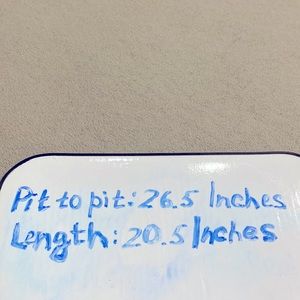 Pit to pit: 26.5 Inches
Length: 20.5 Inches